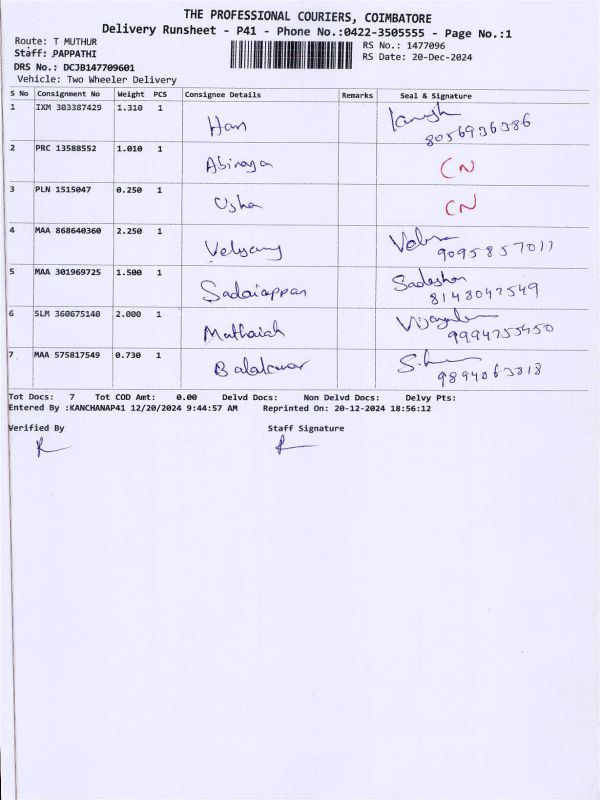 THE PROFESSIONAL COURIERS, COIMBATORE
Delivery Runsheet - P41 - Phone No.:0422-3505555 - Page No.:1
Route: T MUTHUR
RS No.: 1477096
Staff: PAPPATHI
RS Date: 20-Dec-2024
DRS No.: DCJB147709601
Vehicle: Two Wheeler Delivery
S No Consignment No Weight PCS Consignee Details Remarks Seal & Signature
1 IXM 303387429 1.310 1 Hari
8056936386
2 PRC 13588552 1.010 1 Abinaya CN
3 PLN 1515047 0.250 1 Usha CN
4 MAA 868640360 2.250 1 Velusamy
9095857011
5 MAA 301969725 1.500 1 Sadaiappan
8148047549
6 SLM 360675140 2.000 1 Muthaiah
9994755450
7 MAA 575817549 0.730 1
9894063318
Tot Docs: 7 Tot COD Amt: 0.00 Delvd Docs: Non Delvd Docs: Delvy Pts:
Entered By :KANCHANAP41 12/20/2024 9:44:57 AM Reprinted On: 20-12-2024 18:56:12
Verified By Staff Signature